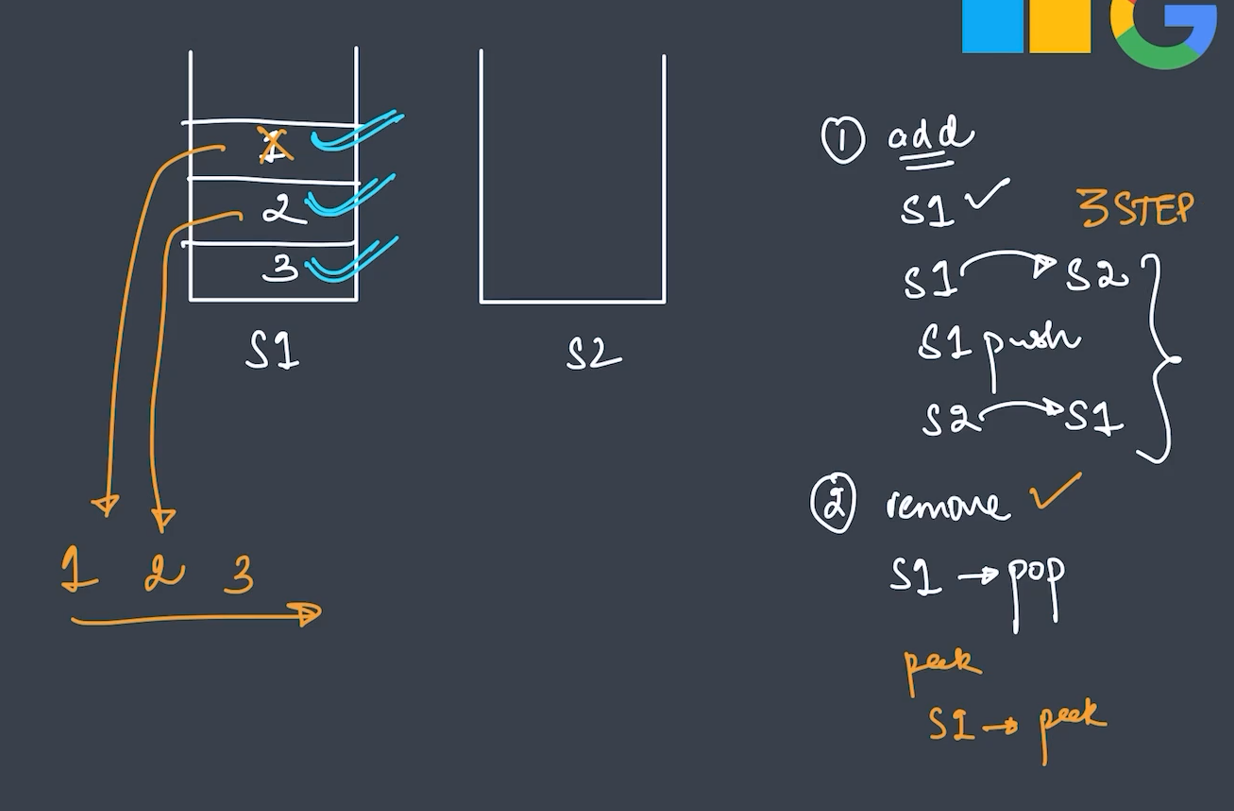 1
2
3
S1
S2
1 2 3
① add
S1 ✓ 3 STEP
S1 → S2
S1 push
S2 → S1
② remove ✓
S1 → pop
peek
S1 → peek